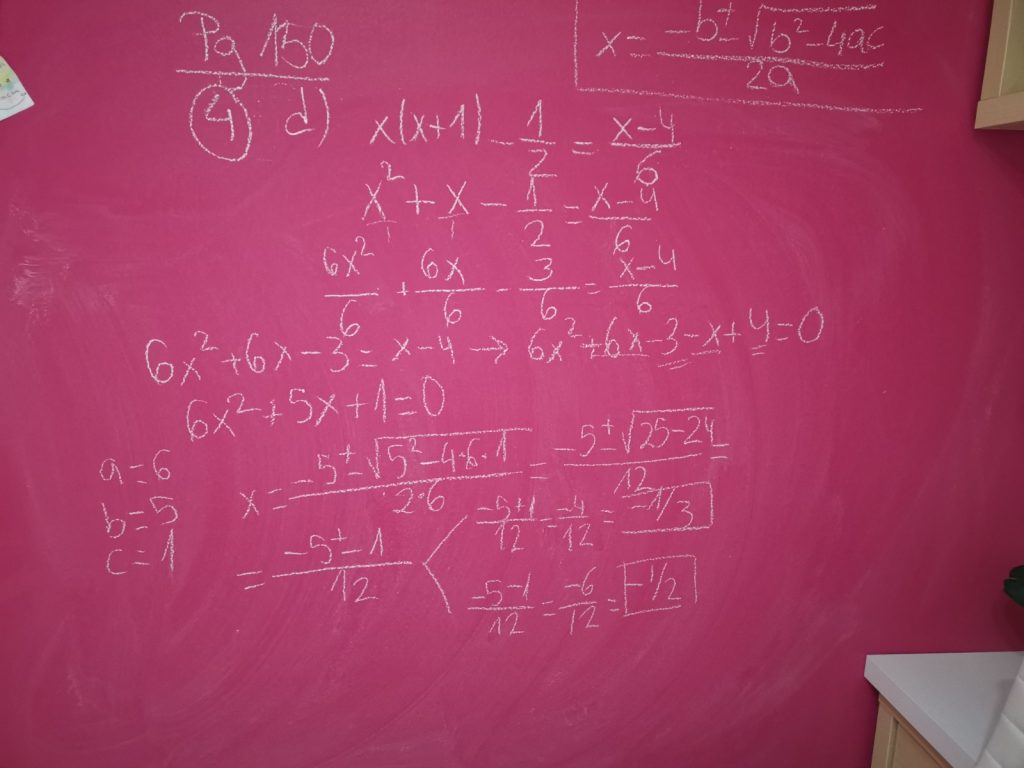 Pg 150
x = (-b ± √(b² - 4ac)) / 2a
④ d) x(x+1) - 1/2 = (x-4)/6
x²/1 + x/1 - 1/2 = (x-4)/6
6x²/6 + 6x/6 - 3/6 = (x-4)/6
6x² + 6x - 3 = x - 4 → 6x² + 6x - 3 - x + 4 = 0
6x² + 5x + 1 = 0
a = 6
b = 5
c = 1
x = (-5 ± √(5² - 4·6·1)) / 2·6 = (-5 ± √(25-24)) / 12 =
= (-5 ± 1) / 12
(-5+1)/12 = -4/12 = -1/3
(-5-1)/12 = -6/12 = -1/2